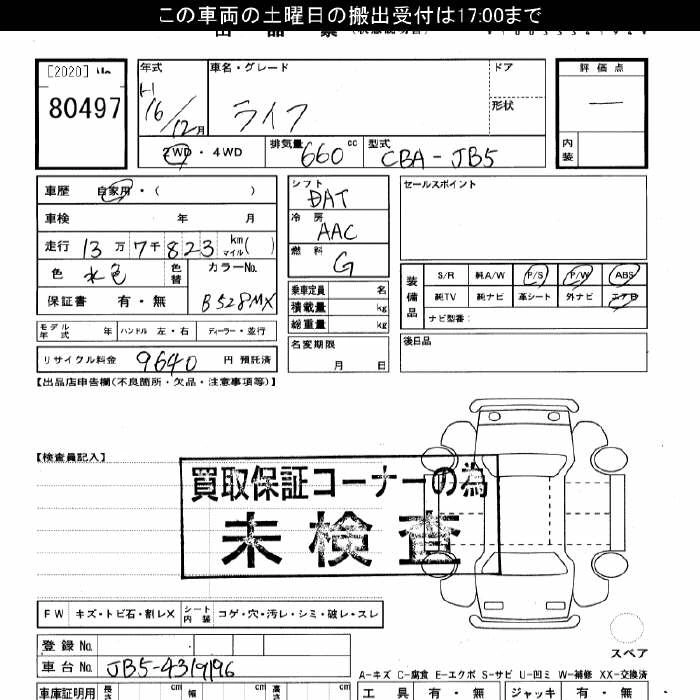 この車両の土曜日の搬出受付は17:00まで
[2020] No
80497
年式
H
16/12月
車名・グレード
ライフ
ドア
形状
評価点
—
内装
2WD・4WD
排気量 660cc
型式 CBA-JB5
車歴 自家用・( )
車検 年 月
走行 13万7千823 km マイル( )
色 水色 色替
カラーNo. B528MX
保証書 有・無
シフト DAT
冷房 AAC
燃料 G
乗車定員 名
積載量 kg
総重量 kg
名変期限
月 日
セールスポイント
装備品
S/R 純A/W P/S P/W ABS
純TV 純ナビ 革シート 外ナビ エアB
ナビ型番:
後日品
モデル年式 年 ハンドル 左・右 ディーラー・並行
リサイクル料金 9640 円 預託済
【出品店申告欄(不良箇所・欠品・注意事項等)】
【検査員記入】
買取保証コーナーの為
未検査
FW キズ・トビ石・割レX シート内装 コゲ・穴・汚レ・シミ・破レ・スレ
スペア
登録No.
車台No. JB5-4319196
A-キズ C-腐食 E-エクボ S-サビ U-凹ミ W-補修 XX-交換済
車庫証明用 長さ cm 幅 cm 高さ cm
工具 有・無 ジャッキ 有・無